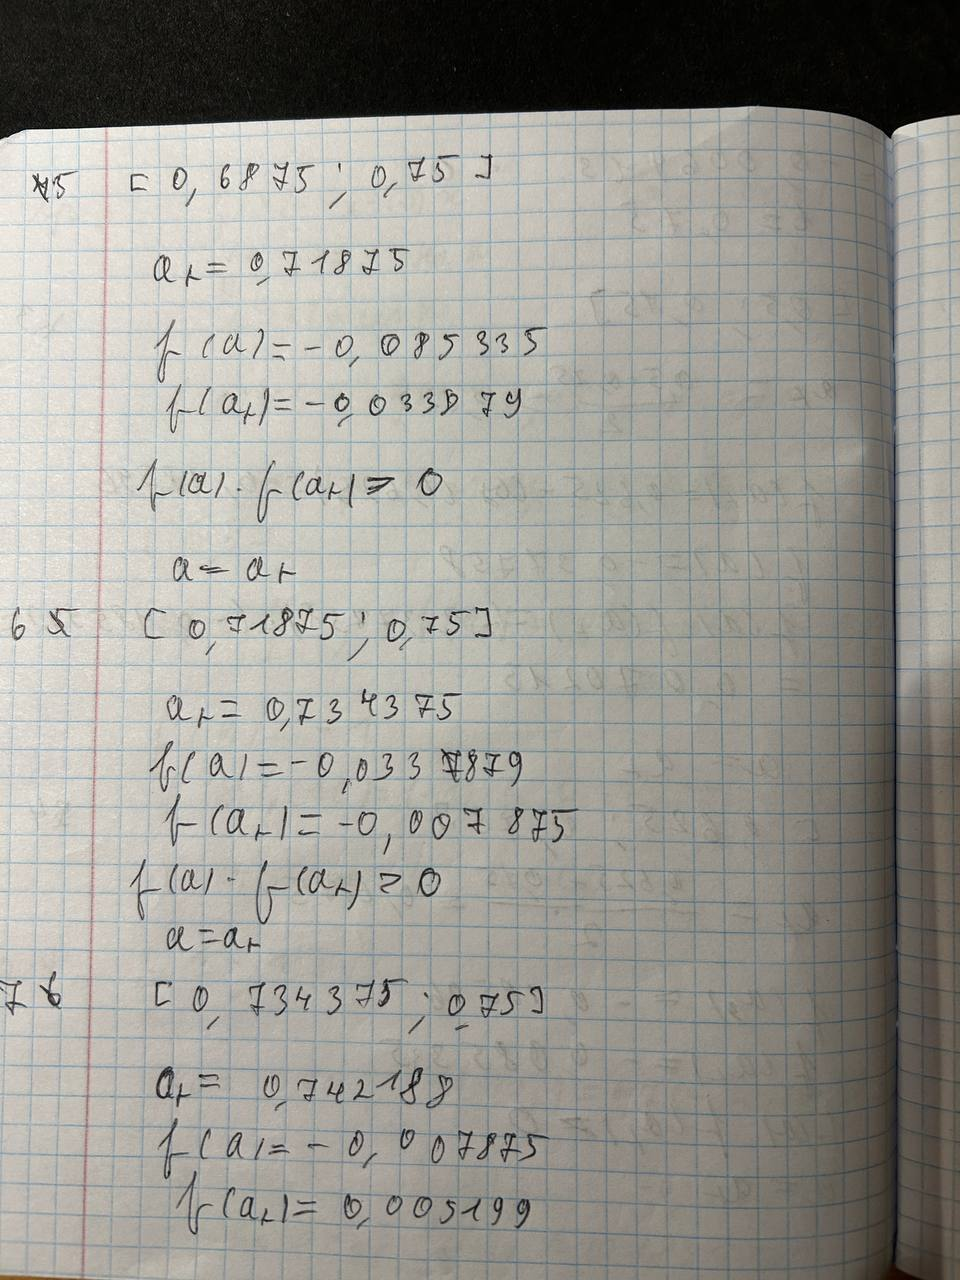 5 [0,6875; 0,75]
aₜ = 0,71875
f(a) = -0,085335
f(aₜ) = -0,033879
f(a) · f(aₜ) > 0
a = aₜ
6 [0,71875; 0,75]
aₜ = 0,734375
f(a) = -0,0337879
f(aₜ) = -0,007875
f(a) · f(aₜ) > 0
a = aₜ
7 [0,734375; 0,75]
aₜ = 0,742188
f(a) = -0,007875
f(aₜ) = 0,005199